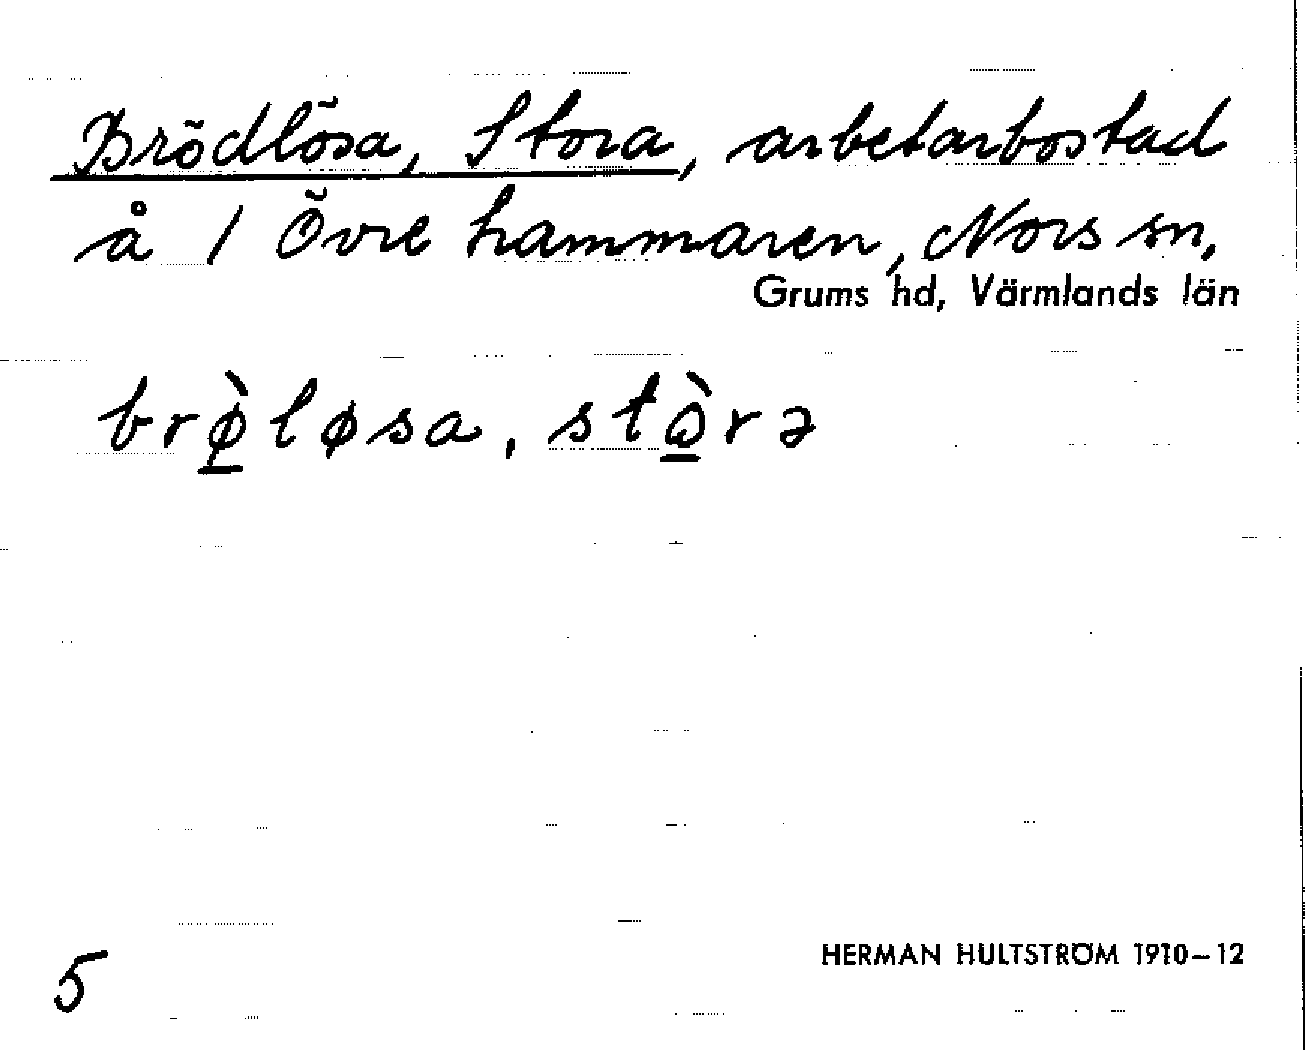 Brödlösa, Stora, arbetarbostad
å 1 Övre hammaren, Nors sn,
Grums hd, Värmlands län
brø̱̀løsa, stò̱rə
5
HERMAN HULTSTRÖM 1910–12